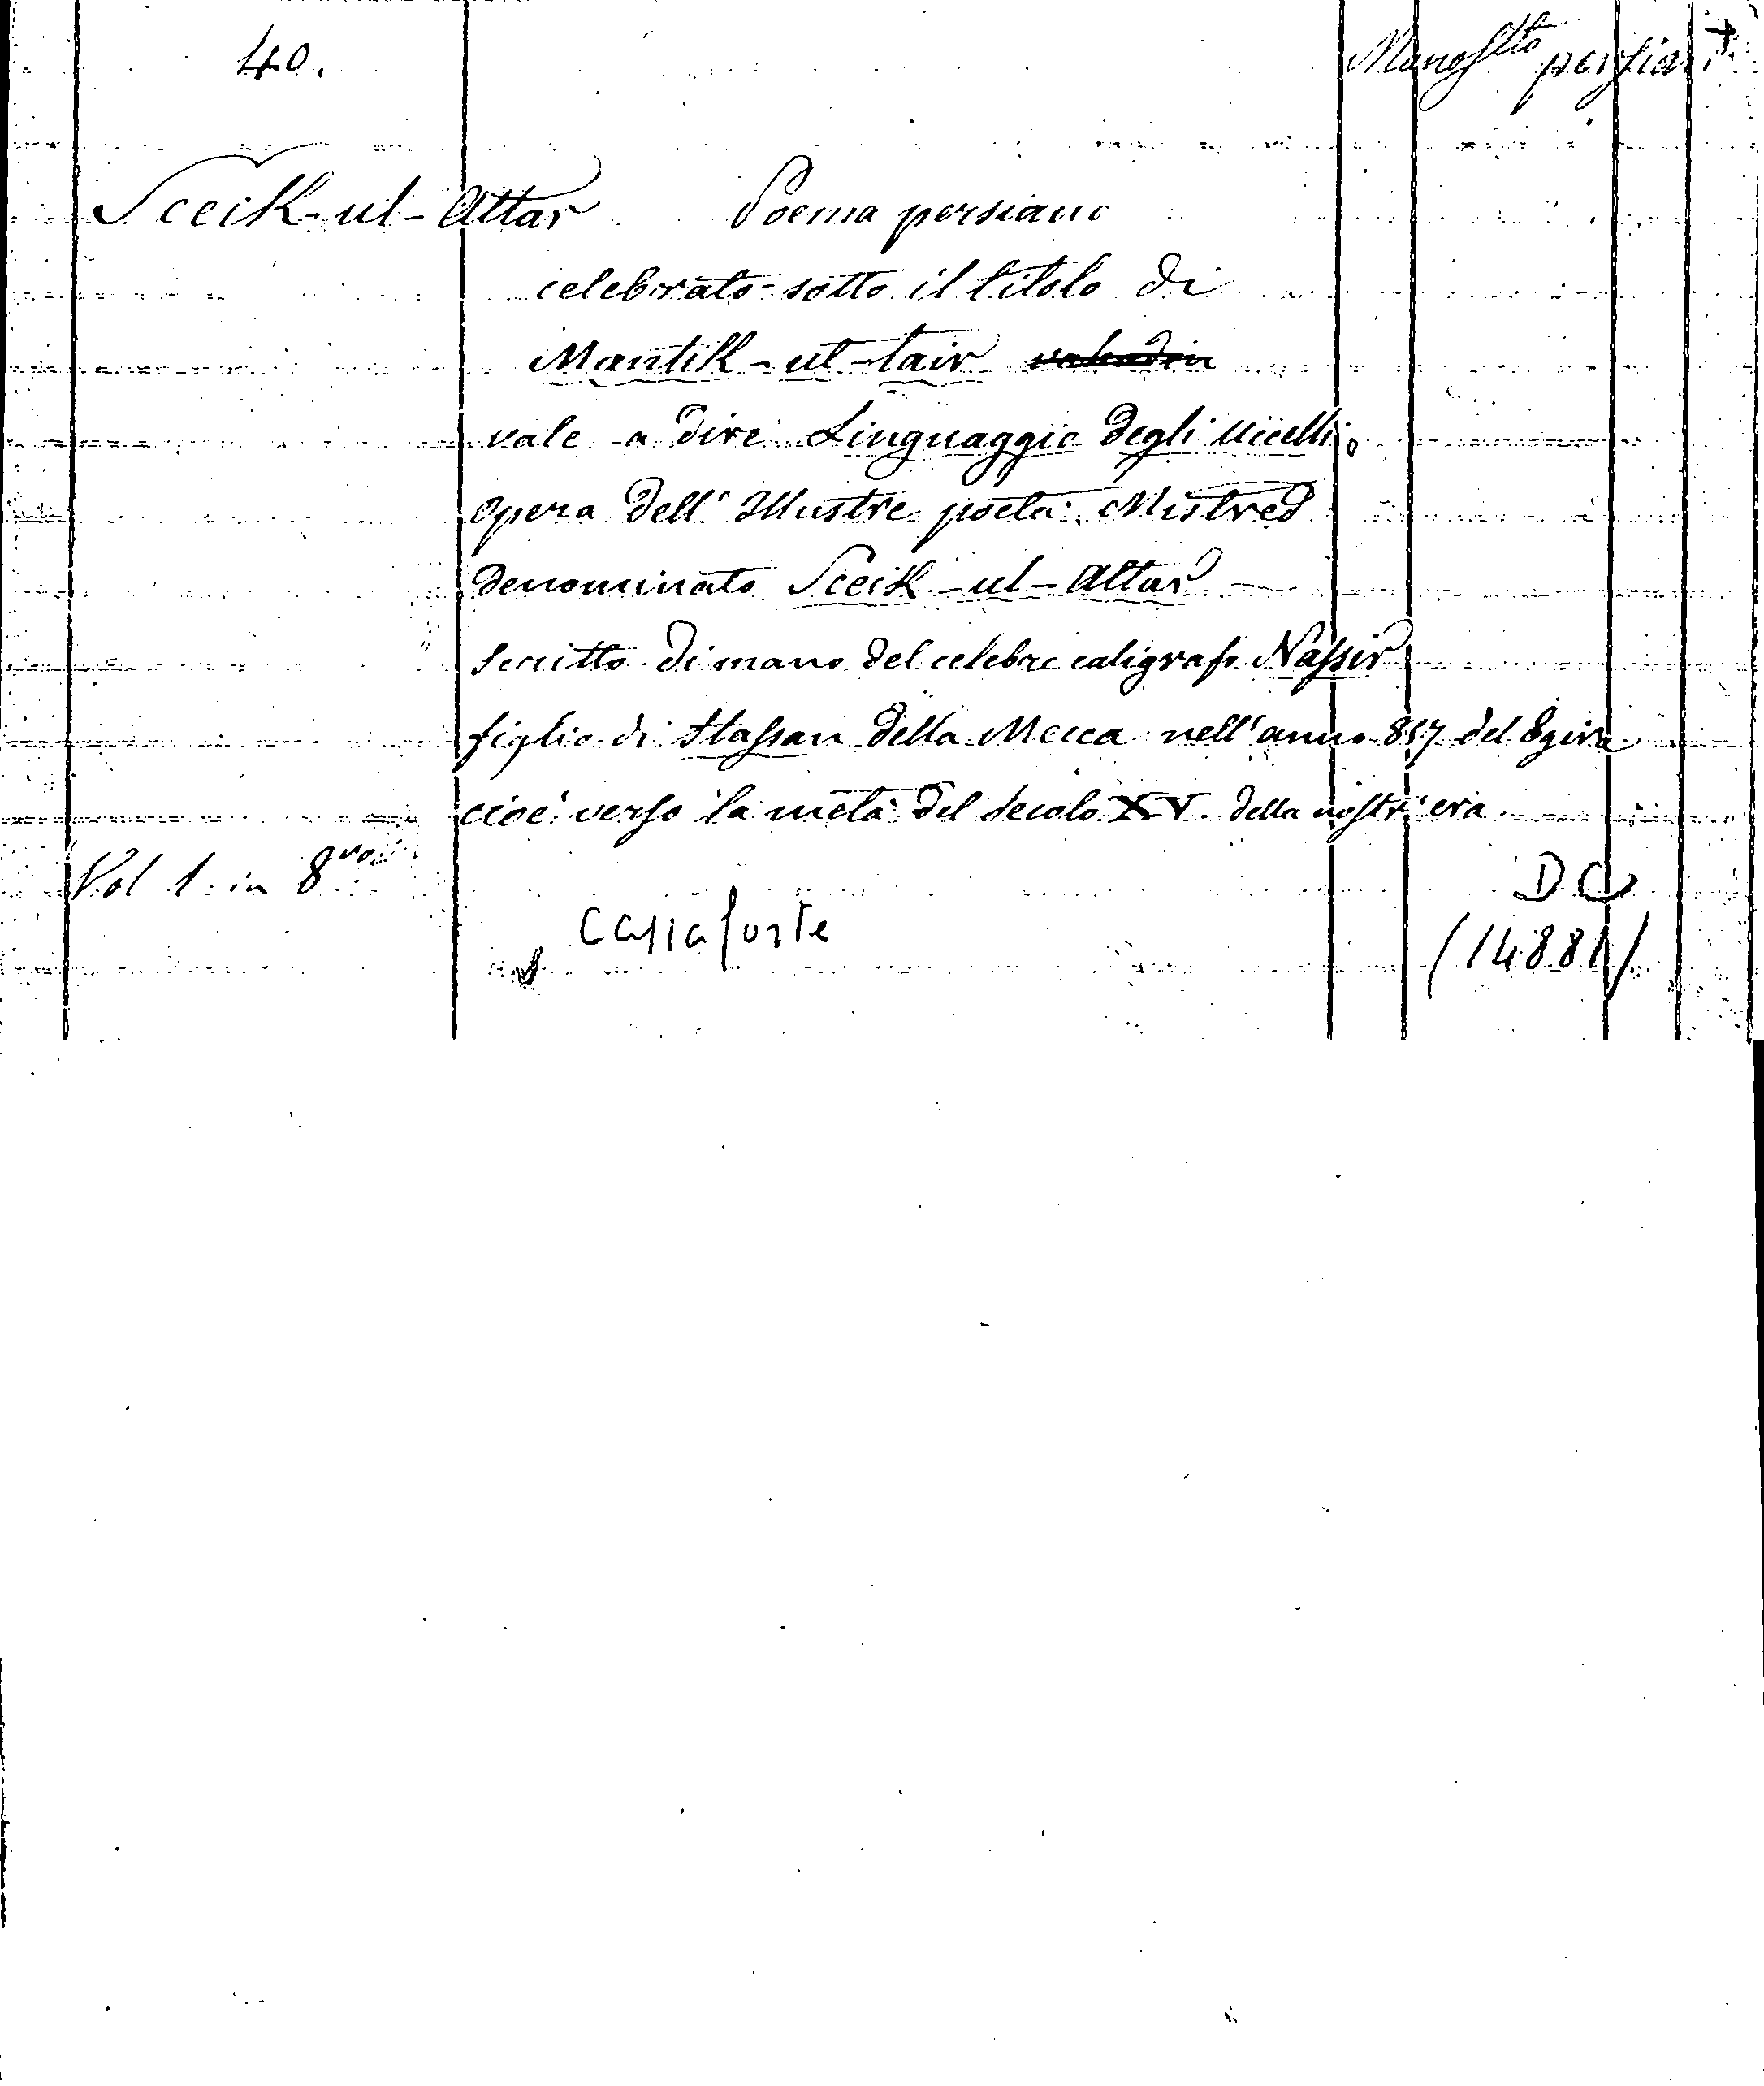 40. Manosctto persian.
Sceik-ul-Attar Poema persiano
celebrato sotto il titolo di
Mantik-ut-tair
vale a dire Linguaggio degli Uccelli,
opera dell' Illustre poeta
denominato Sceik-ul-Attar
scritto di mano del celebre caligrafo Nassir
figlio di Hassan della Mecca nell'anno 857 del Egira
cioè verso la metà del secolo XV. della nostr' era
Vol 1. in 8vo
Cassaforte
DC
(14881)